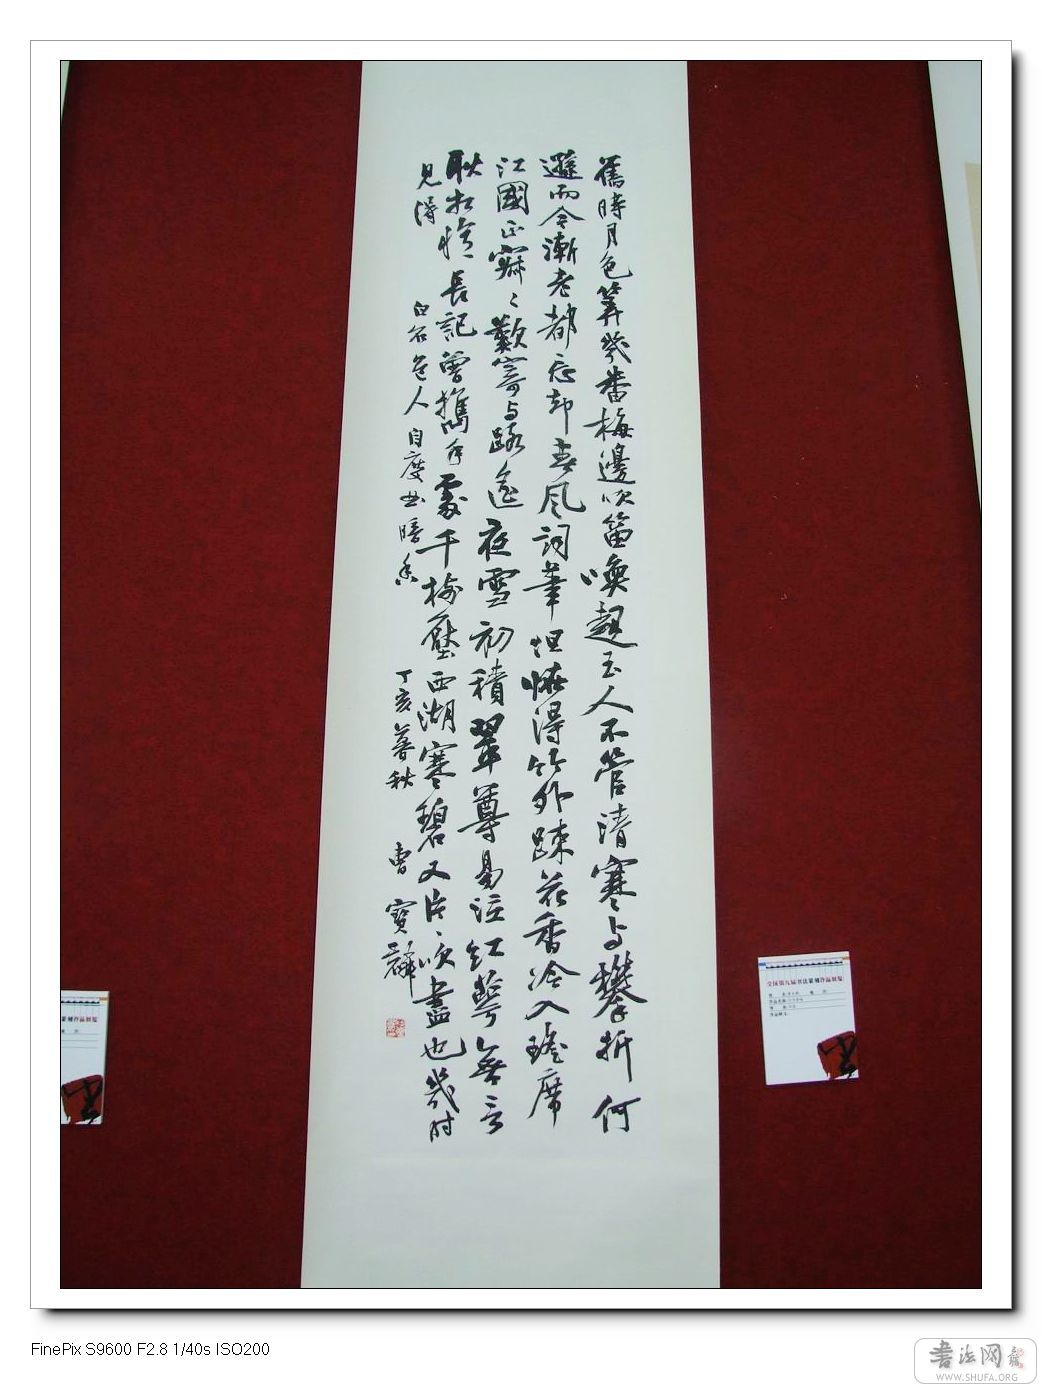 舊時月色算幾番梅邊吹笛喚起玉人不管清寒與攀折何
遜而今漸老都忘却春風詞筆但怪得竹外疎花香冷入瑤席
江國正寂〻歎寄與路遙夜雪初積翠尊易泣紅萼無言
耿相憶長記曾攜手處千樹壓西湖寒碧又片〻吹盡也幾時
見得
白石道人自度曲暗香
丁亥暮秋
曹寶麟
全国第九届书法篆刻作品展览
篆刻作品展览
FinePix S9600 F2.8 1/40s ISO200
書法网
WWW.SHUFA.ORG